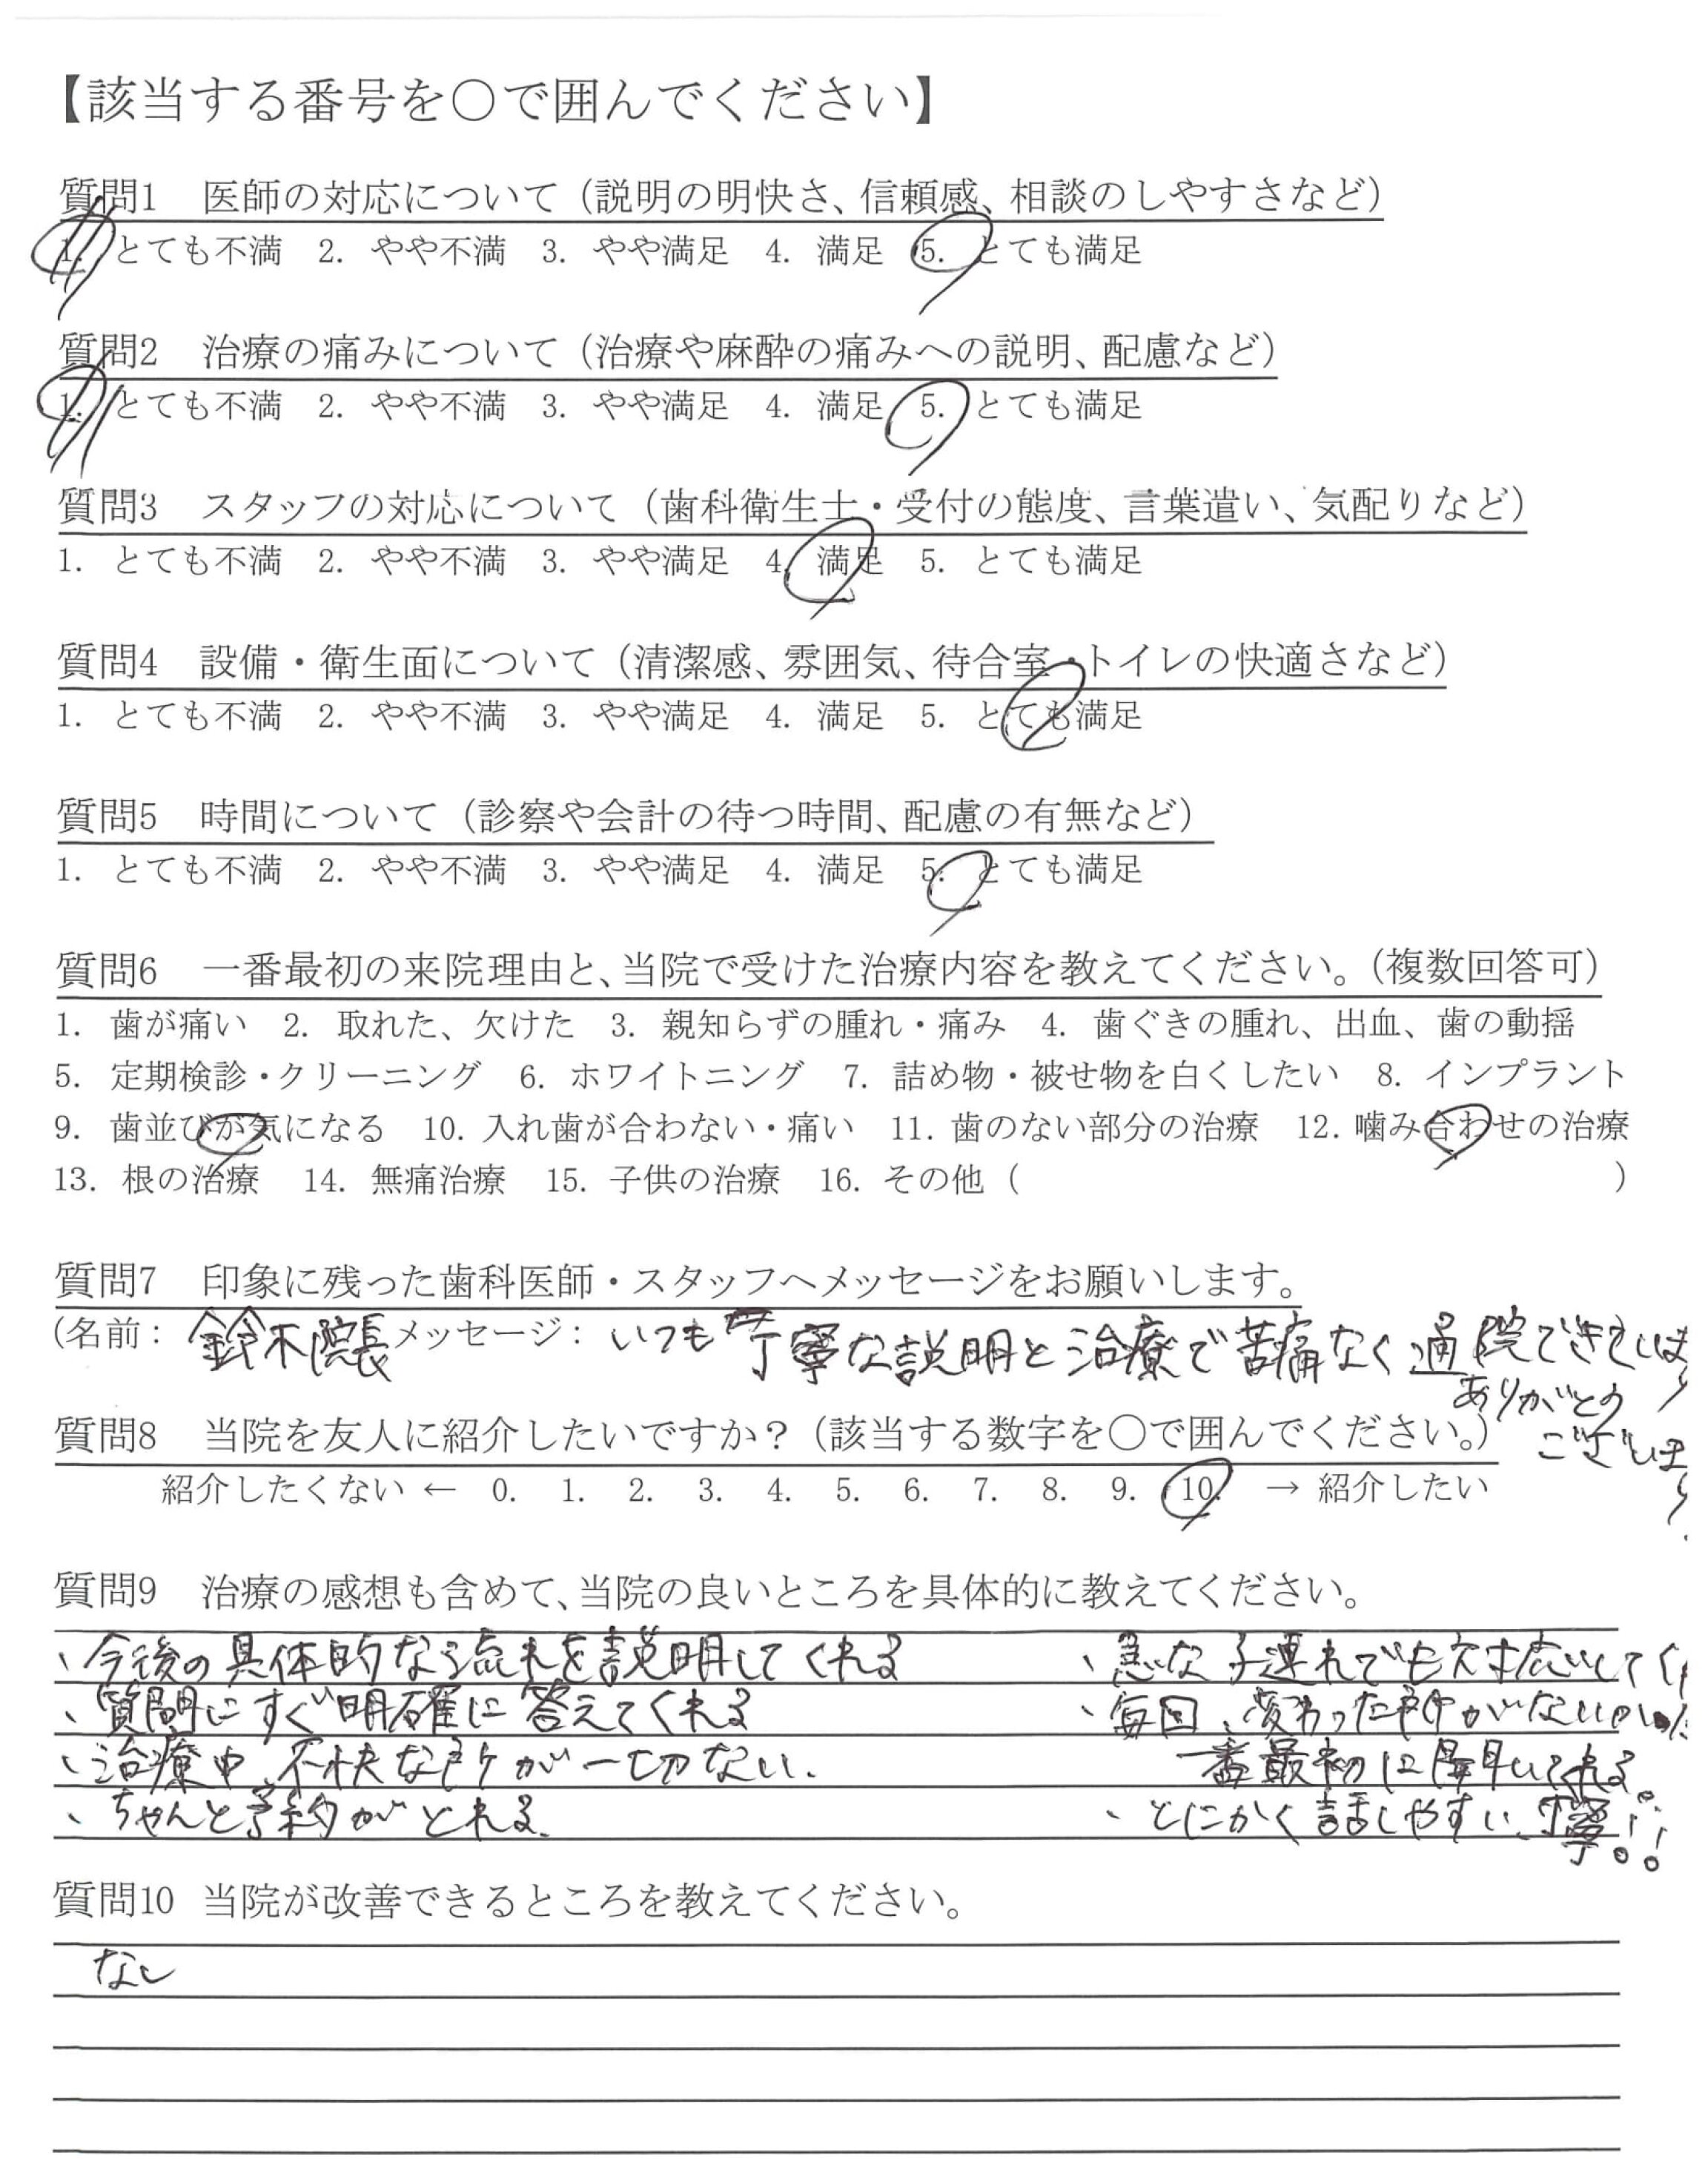 【該当する番号を○で囲んでください】
質問1　医師の対応について（説明の明快さ、信頼感、相談のしやすさなど）
1. とても不満　2. やや不満　3. やや満足　4. 満足　5. とても満足
質問2　治療の痛みについて（治療や麻酔の痛みへの説明、配慮など）
1. とても不満　2. やや不満　3. やや満足　4. 満足　5. とても満足
質問3　スタッフの対応について（歯科衛生士・受付の態度、言葉遣い、気配りなど）
1. とても不満　2. やや不満　3. やや満足　4. 満足　5. とても満足
質問4　設備・衛生面について（清潔感、雰囲気、待合室・トイレの快適さなど）
1. とても不満　2. やや不満　3. やや満足　4. 満足　5. とても満足
質問5　時間について（診察や会計の待つ時間、配慮の有無など）
1. とても不満　2. やや不満　3. やや満足　4. 満足　5. とても満足
質問6　一番最初の来院理由と、当院で受けた治療内容を教えてください。（複数回答可）
1. 歯が痛い　2. 取れた、欠けた　3. 親知らずの腫れ・痛み　4. 歯ぐきの腫れ、出血、歯の動揺
5. 定期検診・クリーニング　6. ホワイトニング　7. 詰め物・被せ物を白くしたい　8. インプラント
9. 歯並びが気になる　10. 入れ歯が合わない・痛い　11. 歯のない部分の治療　12. 噛み合わせの治療
13. 根の治療　14. 無痛治療　15. 子供の治療　16. その他（　　　）
質問7　印象に残った歯科医師・スタッフへメッセージをお願いします。
（名前：鈴木院長 メッセージ：いつも丁寧な説明と治療で苦痛なく通院できていま
ありがとう
ございま
質問8　当院を友人に紹介したいですか？（該当する数字を○で囲んでください。）
紹介したくない ← 0. 1. 2. 3. 4. 5. 6. 7. 8. 9. 10. → 紹介したい
質問9　治療の感想も含めて、当院の良いところを具体的に教えてください。
、今後の具体的な流れを説明してくれる
、質問にすぐ明確に答えてくれる
、治療中、不快な所が一切ない.
、ちゃんと予約がとれる.
、急な子連れでも対応して
、毎回、変わった所がないか
一番最初に聞いてくれる。
、とにかく話しやすい、丁寧!!
質問10　当院が改善できるところを教えてください。
なし